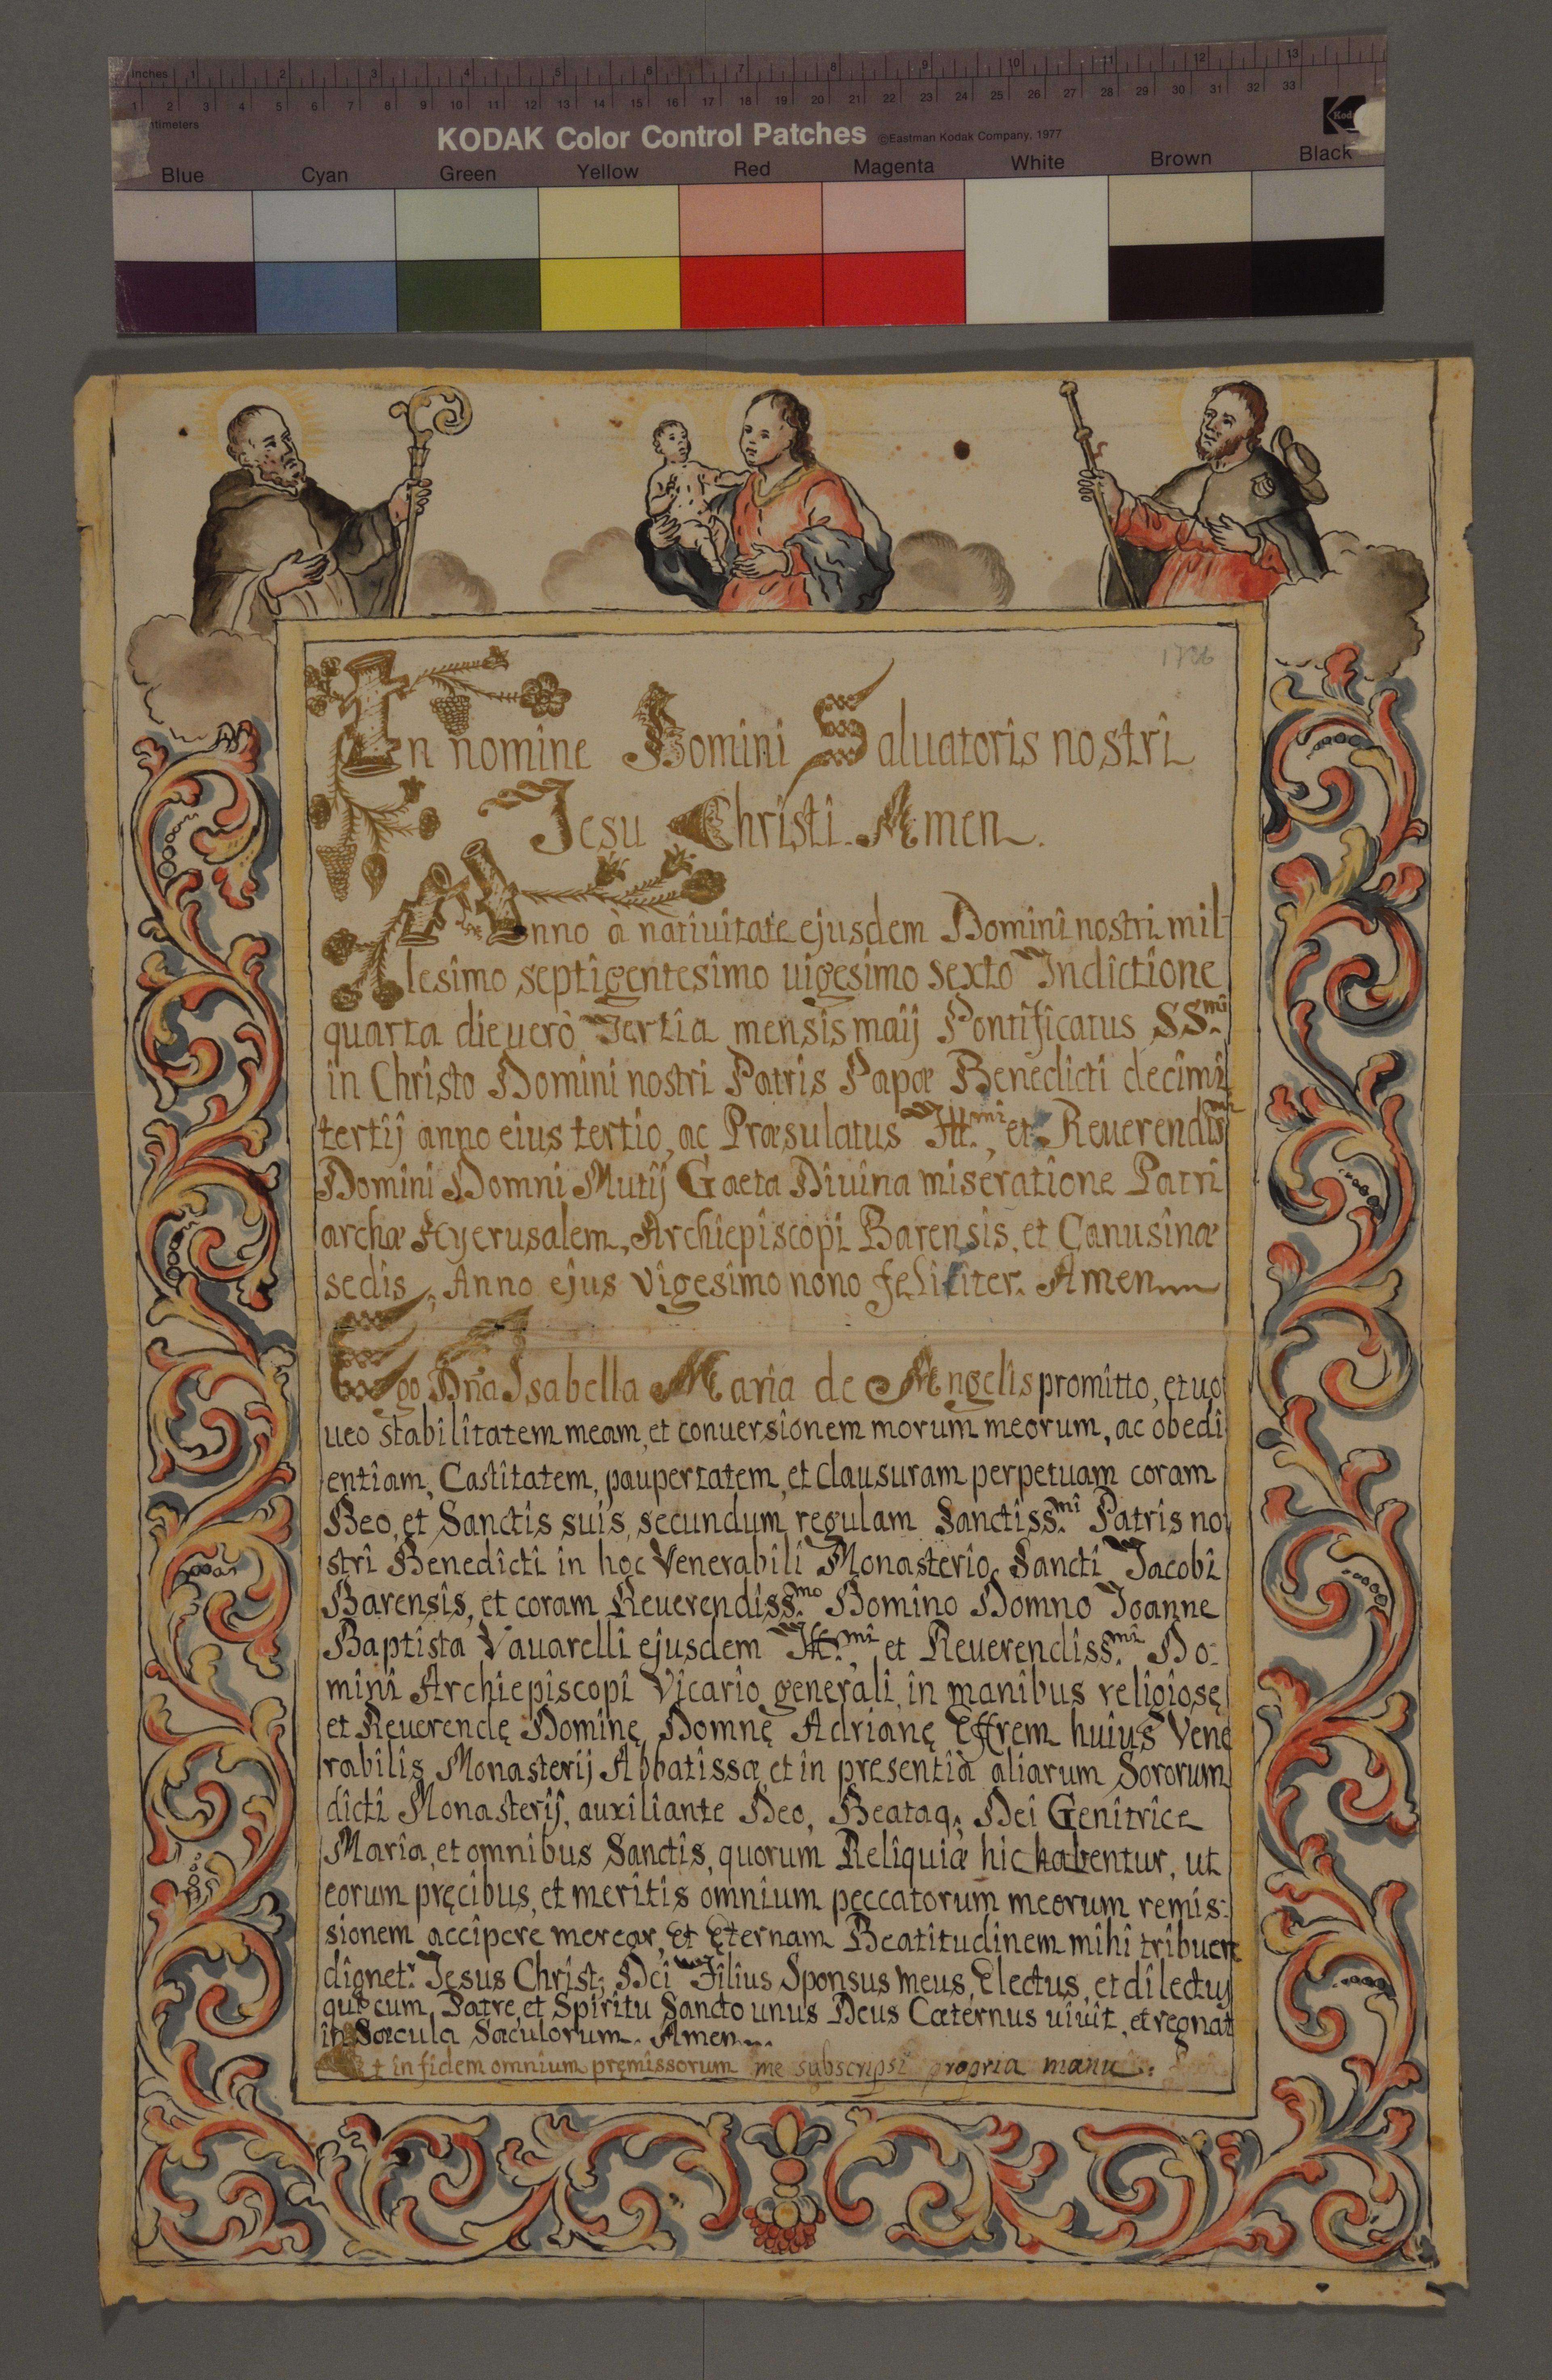 inches 1 2 3 4 5 6 7 8 9 10 11 12 13
1 2 3 4 5 6 7 8 9 10 11 12 13 14 15 16 17 18 19 20 21 22 23 24 25 26 27 28 29 30 31 32 33
KODAK Color Control Patches ©Eastman Kodak Company, 1977
Blue Cyan Green Yellow Red Magenta White Brown Black
1726
In nomine Domini Saluatoris nostri
Jesu Christi. Amen.
Anno à natiuitate ejusdem Domini nostri mil
lesimo septigentesimo uigesimo sexto Indictione
quarta die uerò Tertia mensis maij Pontificatus SS.mi
in Christo Domini nostri Patris Papæ Benedicti decimi
tertij anno eius tertio, ac Præsulatus Ill.mi, et Reuerendis.mi
Domini Domni Mutij Gaeta Diuina miseratione Patri
archæ Hyerusalem, Archiepiscopi Barensis, et Canusinæ
sedis, Anno ejus vigesimo nono feliciter. Amen
Ego Dña Isabella Maria de Angelis promitto, et uo
ueo stabilitatem meam, et conuersionem morum meorum, ac obedi
entiam, Castitatem, paupertatem, et clausuram perpetuam coram
Deo, et Sanctis suis, secundum regulam Sanctiss.mi Patris no
stri Benedicti in hoc Venerabili Monasterio Sancti Jacobi
Barensis, et coram Reuerendiss.mo Domino Domno Joanne
Baptista Vauarelli ejusdem Ill.mi, et Reuerendiss.mi Do:
mini Archiepiscopi Vicario generali, in manibus religiosę
et Reuerendę Dominę Domnę Adrianę Effrem huius Vene
rabilis Monasterij Abbatissæ, et in presentia aliarum Sororum
dicti Monasterij, auxiliante Deo, Beataq; Dei Genitrice
Maria, et omnibus Sanctis, quorum Reliquiæ hic habentur, ut
eorum pręcibus, et meritis omnium peccatorum meorum remis:
sionem accipere merear, et ęternam Beatitudinem mihi tribuere
dignet.r Jesus Christ; Dei Filius Sponsus meus, electus, et dilectus
qui cum Patre, et Spiritu Sancto unus Deus Cæternus uiuit, et regnat
in Sæcula Sæculorum. Amen.
+ in fidem omnium pręmissorum me subscripsi propria manu